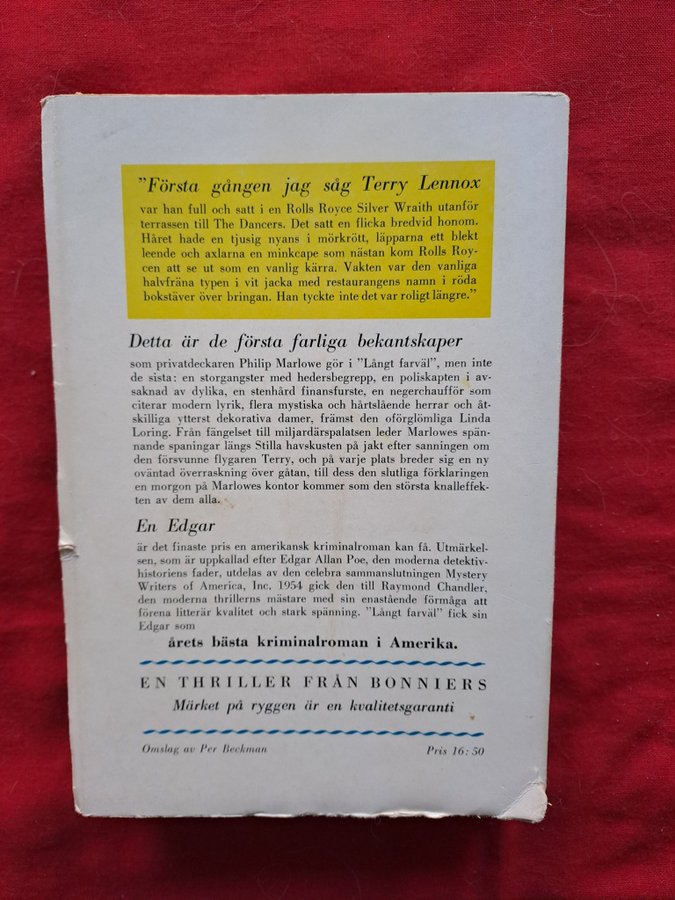 "Första gången jag såg Terry Lennox
var han full och satt i en Rolls Royce Silver Wraith utanför
terrassen till The Dancers. Det satt en flicka bredvid honom.
Håret hade en tjusig nyans i mörkrött, läpparna ett blekt
leende och axlarna en minkcape som nästan kom Rolls Roy-
cen att se ut som en vanlig kärra. Vakten var den vanliga
halvfräna typen i vit jacka med restaurangens namn i röda
bokstäver över bringan. Han tyckte inte det var roligt längre."
Detta är de första farliga bekantskaper
som privatdeckaren Philip Marlowe gör i "Långt farväl", men inte
de sista: en storgangster med hedersbegrepp, en poliskapten i av-
saknad av dylika, en stenhård finansfurste, en negerchaufför som
citerar modern lyrik, flera mystiska och hårtslående herrar och åt-
skilliga ytterst dekorativa damer, främst den oförglömliga Linda
Loring. Från fängelset till miljardärspalatsen leder Marlowes spän-
nande spaningar längs Stilla havskusten på jakt efter sanningen om
den försvunne flygaren Terry, och på varje plats breder sig en ny
oväntad överraskning över gåtan, till dess den slutliga förklaringen
en morgon på Marlowes kontor kommer som den största knalleffek-
ten av dem alla.
En Edgar
är det finaste pris en amerikansk kriminalroman kan få. Utmärkel-
sen, som är uppkallad efter Edgar Allan Poe, den moderna detektiv-
historiens fader, utdelas av den celebra sammanslutningen Mystery
Writers of America, Inc. 1954 gick den till Raymond Chandler,
den moderna thrillerns mästare med sin enastående förmåga att
förena litterär kvalitet och stark spänning. "Långt farväl" fick sin
Edgar som
årets bästa kriminalroman i Amerika.
EN THRILLER FRÅN BONNIERS
Märket på ryggen är en kvalitetsgaranti
Omslag av Per Beckman
Pris 16:50